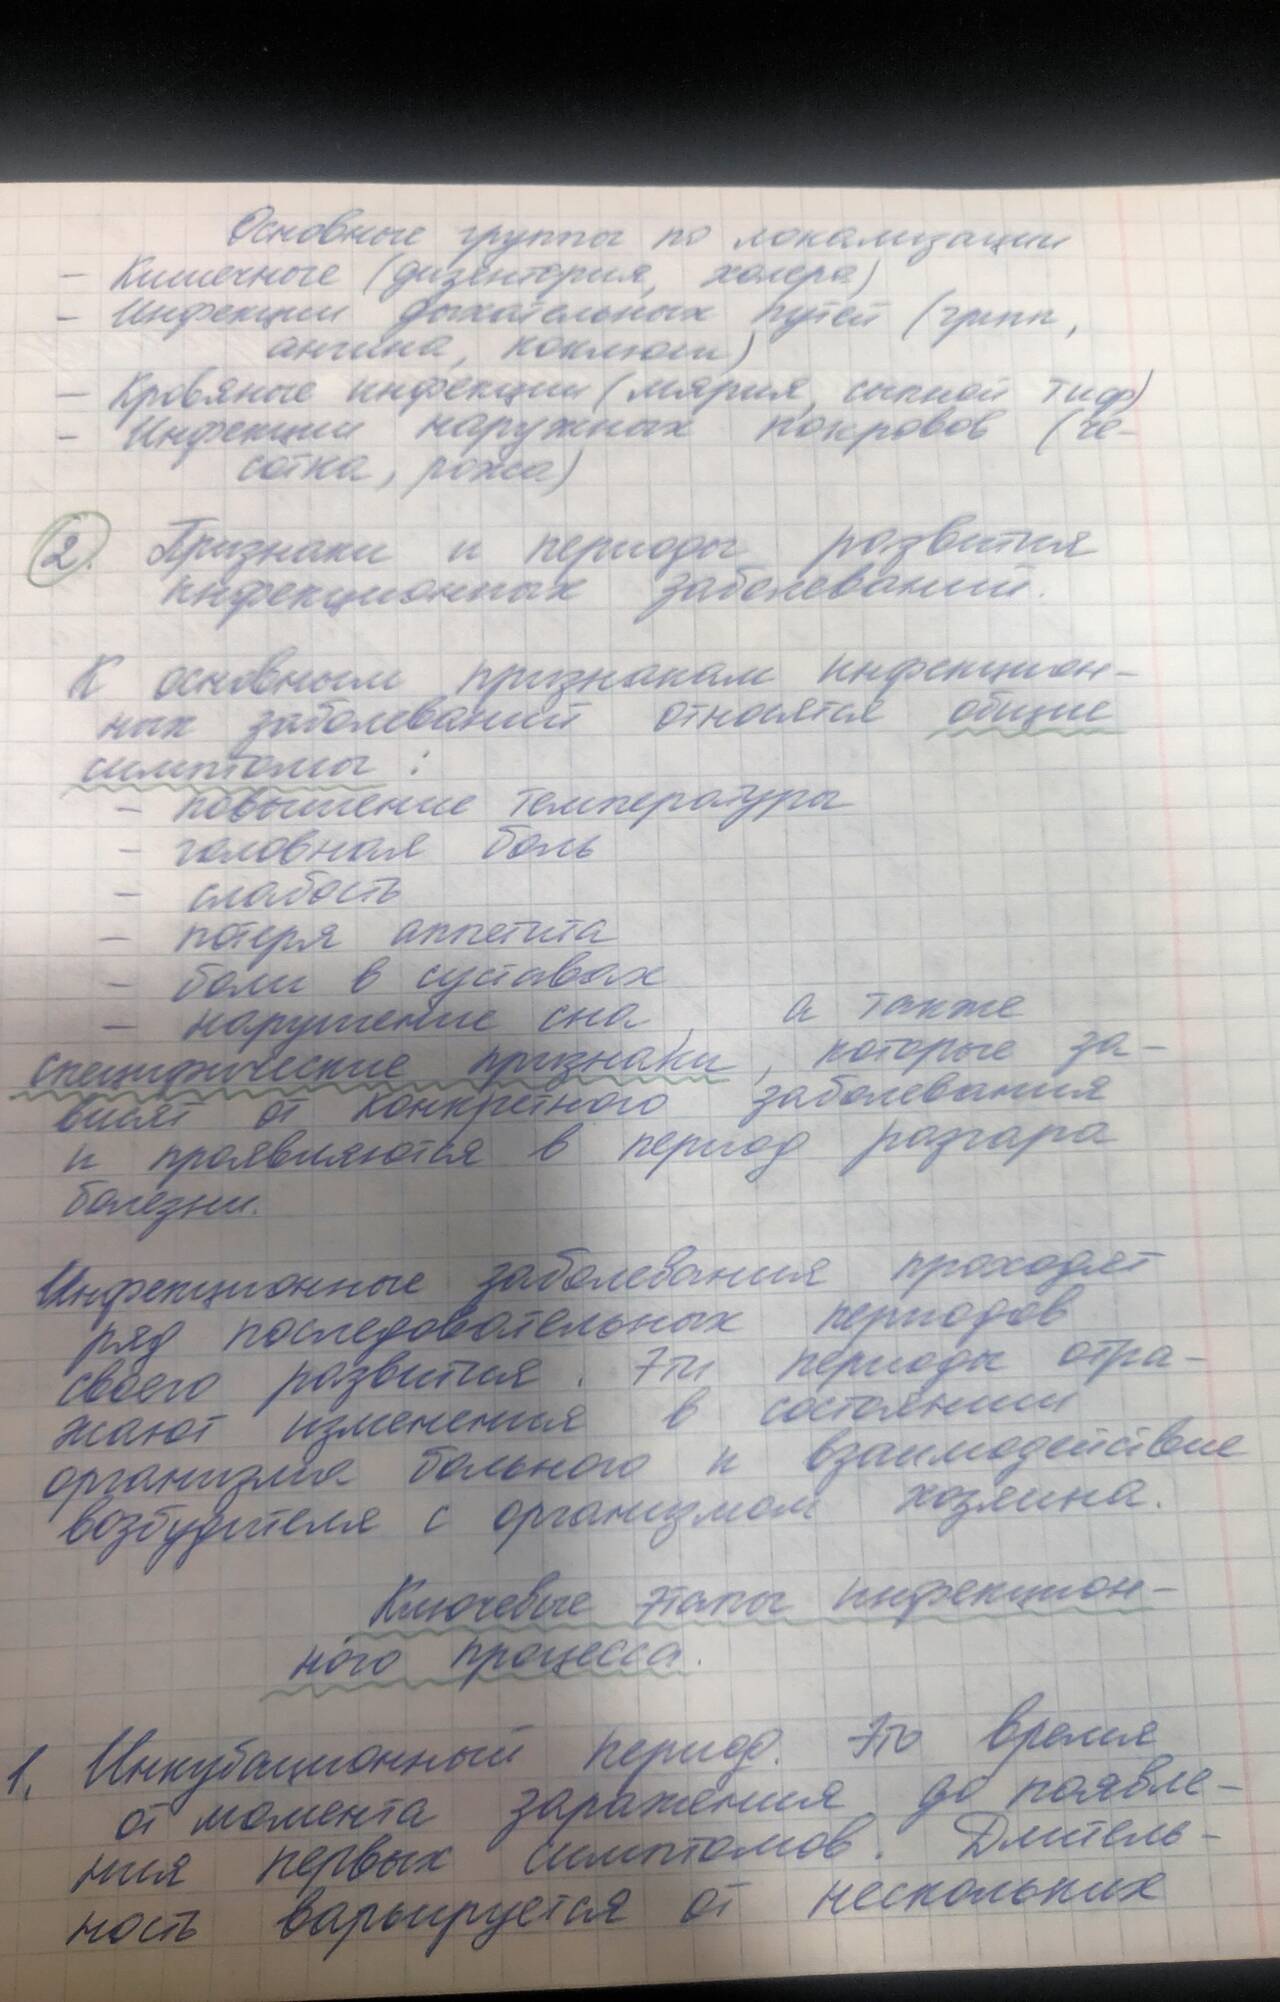 Основные группы по локализации
– Кишечные (дизентория, холера)
– Инфекции дыхательных путей (грипп,
ангина, коклюш)
– Кровяные инфекции (мярия, сыпной тиф)
– Инфекции наружных покровов (че-
сотка, рожа)
2. Признаки и периоды развития
инфекционных заболеваний.
К основным признакам инфекцион-
ных заболеваний относятся общие
симптомы :
– повышение температуры
– головная боль
– слабость
– потеря аппетита
– боли в суставах
– нарушение сна, а также
специфические признаки, которые за-
висят от конкретного заболевания
и проявляются в период разгара
болезни.
Инфекционные заболевания проходят
ряд последовательных периодов
своего развития. Эти периоды отра-
жают изменения в состоянии
организма больного и взаимодействие
возбудителя с организмом хозяина.
Ключевые этапы инфекцион-
ного процесса.
1. Инкубационный период. Это время
от момента заражения до появле-
ния первых симптомов. Длитель-
ность варьируется от нескольких